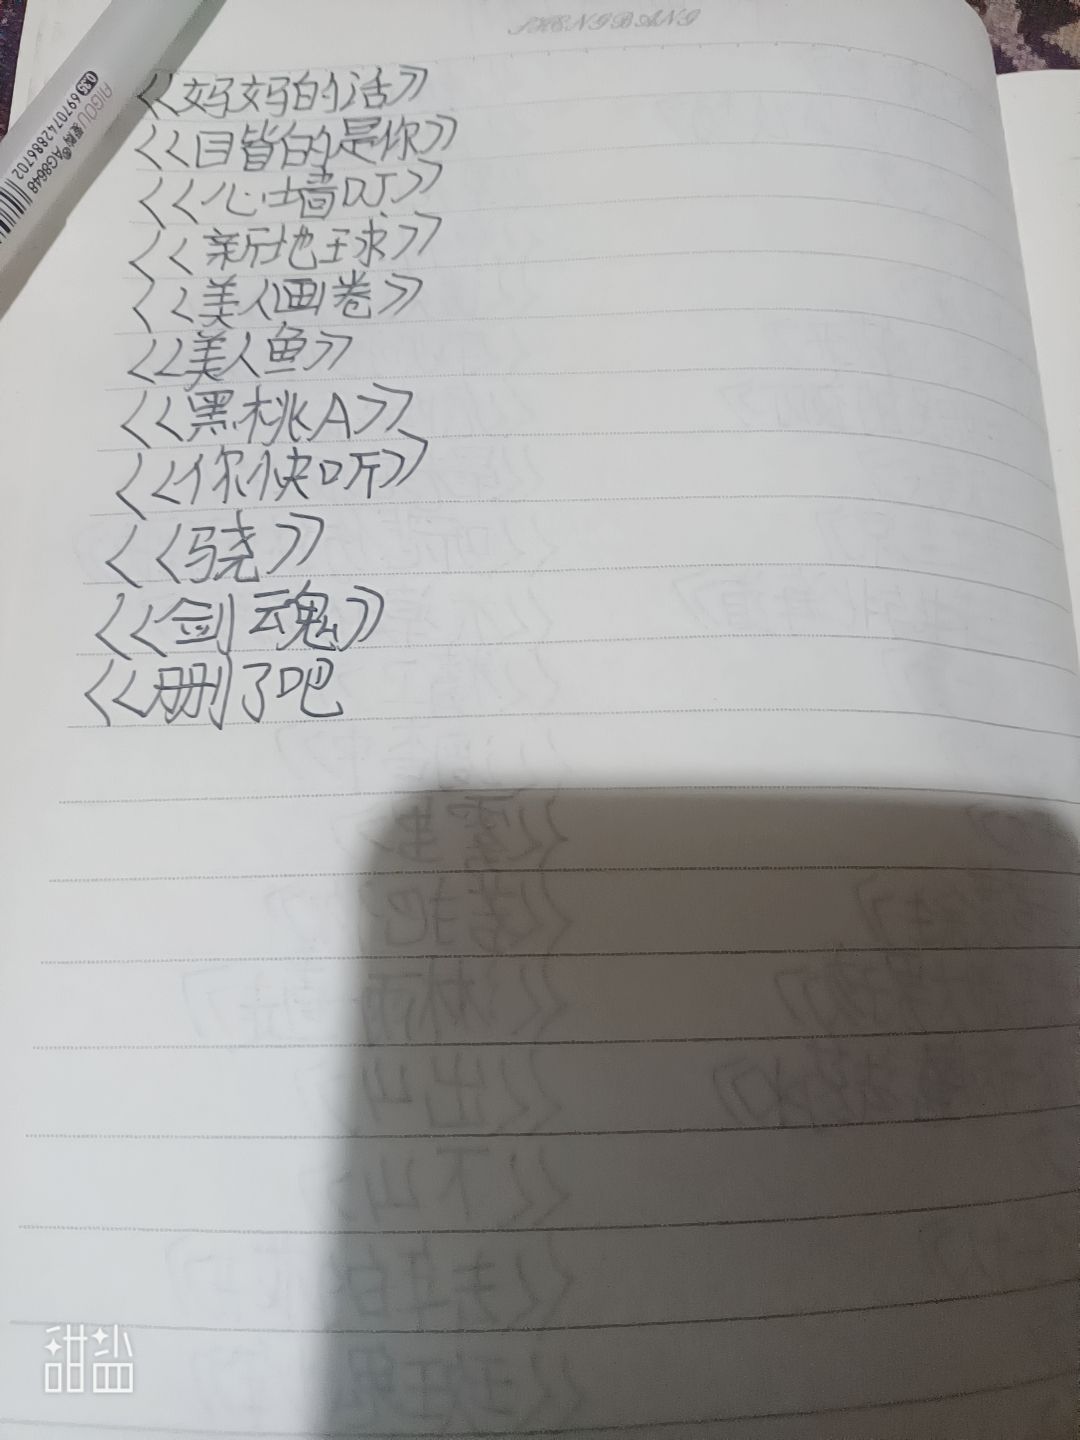 SHENGBANG
《妈妈的话》
《目皆的是你》
《心墙DJ》
《新地球》
《美人画卷》
《美人鱼》
《黑桃A》
《你快听》
《骁》
《剑魂》
《删了吧
AIGOU AG8648
0.35 6970742886702
甜盐